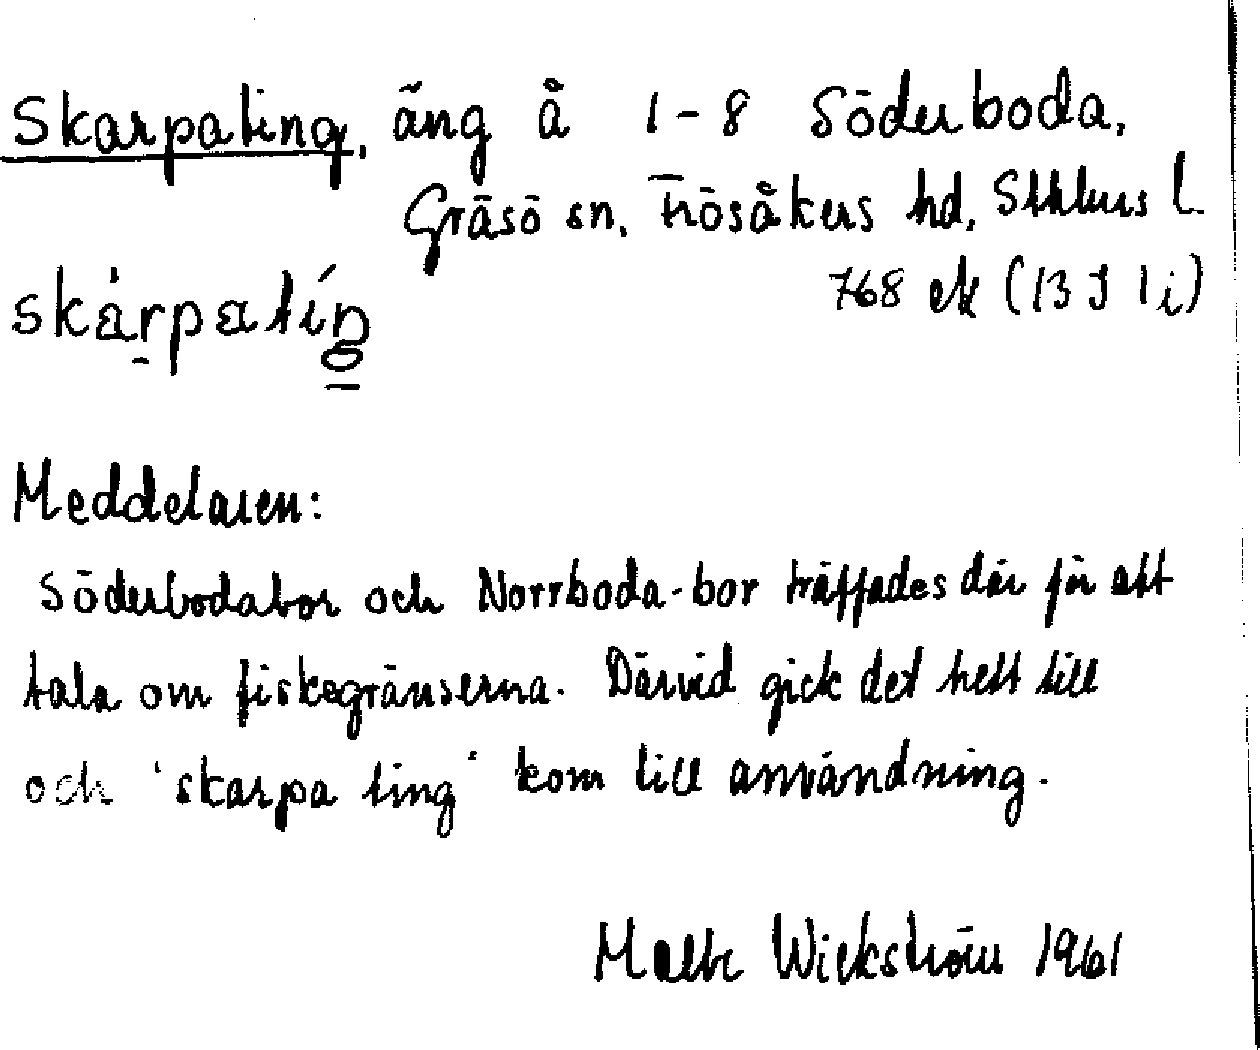 Skarpating, äng å 1-8 Söderboda,
Gräsö sn, Frösåkers hd, Sthlms l.
768 ek (13 I 1 i)
skárpatíŋ
Meddelaren:
Söderbodabor och Norrboda-bor träffades där för att
tala om fiskegränserna. Därvid gick det hett till
och 'skarpa ting' kom till användning.
Malte Wickström 1961